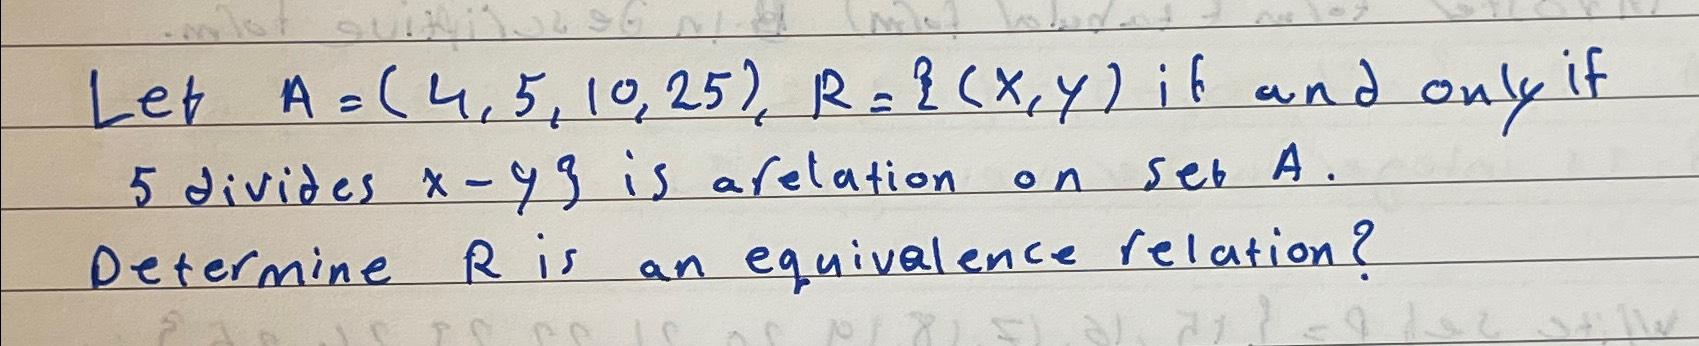 Let A = (4, 5, 10, 25), R = {(x, y) if and only if
5 divides x - y} is a relation on set A.
Determine R is an equivalence relation?